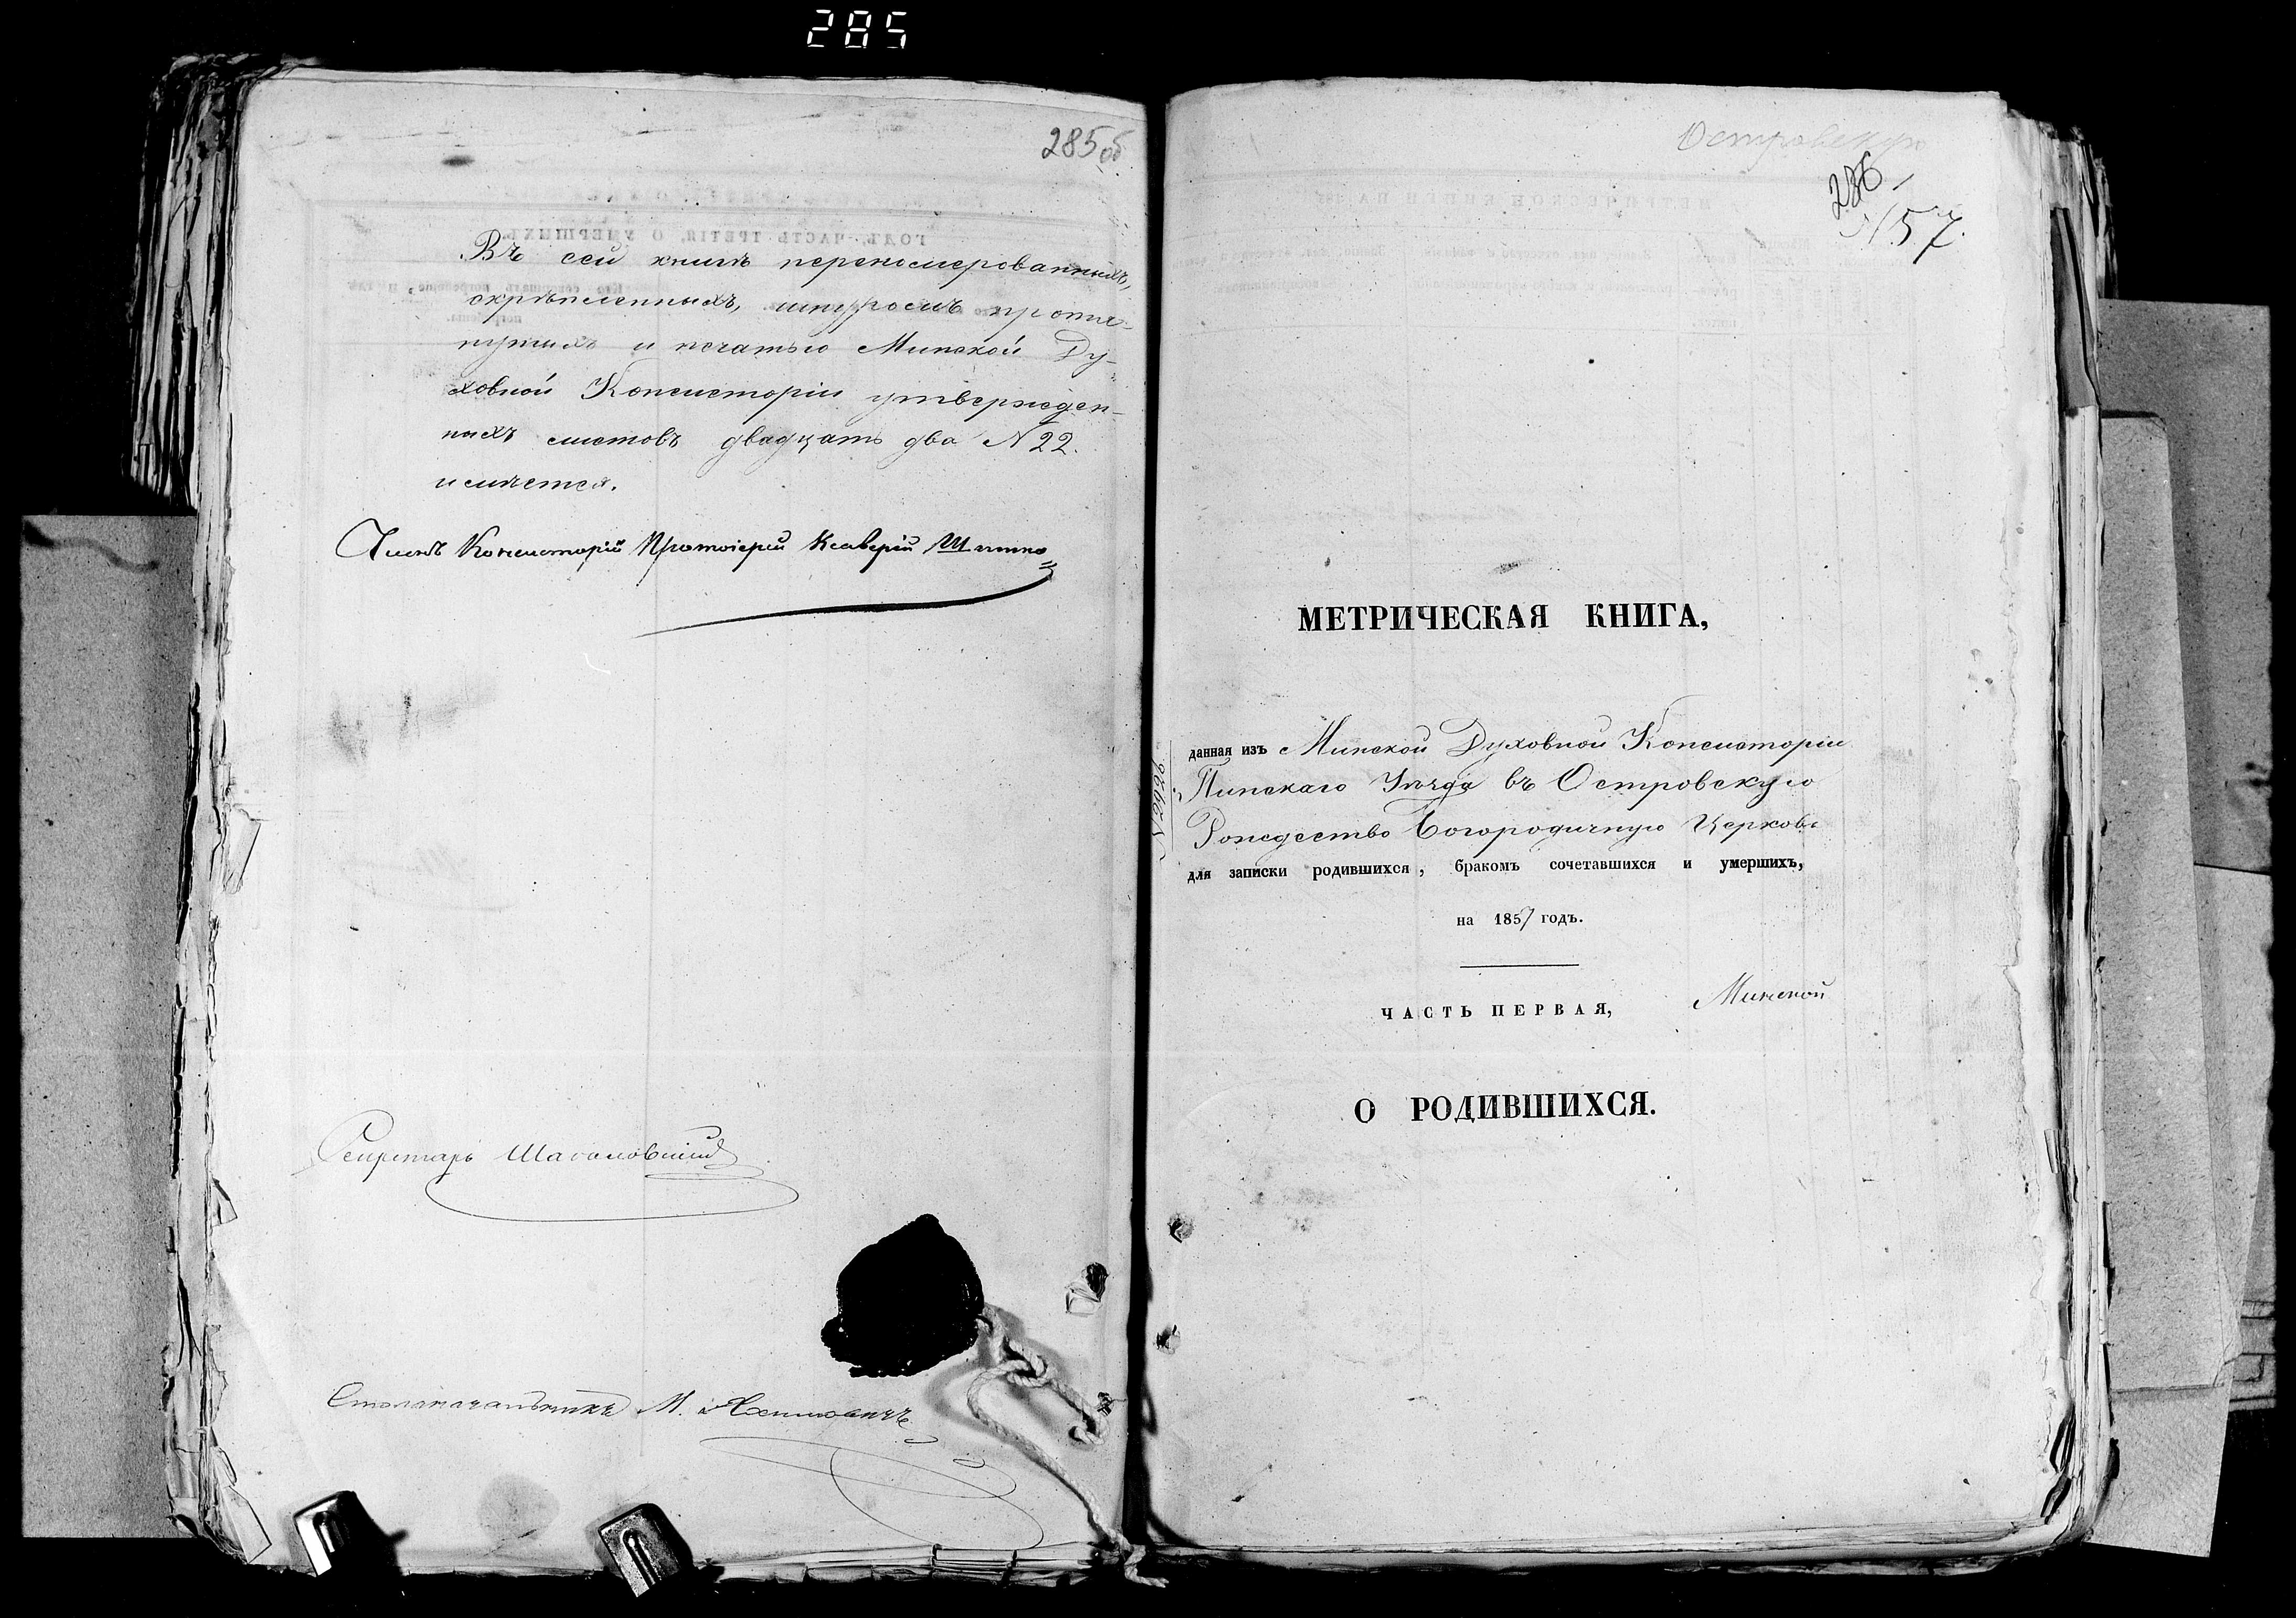 285
285 об
Въ сей книгѣ перенумерованныхъ,
скрѣпленныхъ, шнуромъ протя-
нутыхъ и печатью Минской Ду-
ховной Консисторіи утвержден-
ныхъ листовъ двадцать два N 22.
имѣется.
Членъ Консисторіи Протоіерей Ксаверій
Секретарь
Столоначальникъ М.
Островскую
286
N 57.
МЕТРИЧЕСКАЯ КНИГА,
данная изъ Минской Духовной Консисторіи
Пинскаго Уѣзда въ Островскую
Рождество Богородичную Церковь
для записки родившихся, бракомъ сочетавшихся и умершихъ,
на 1857 годъ.
ЧАСТЬ ПЕРВАЯ,
Минской
О РОДИВШИХСЯ.